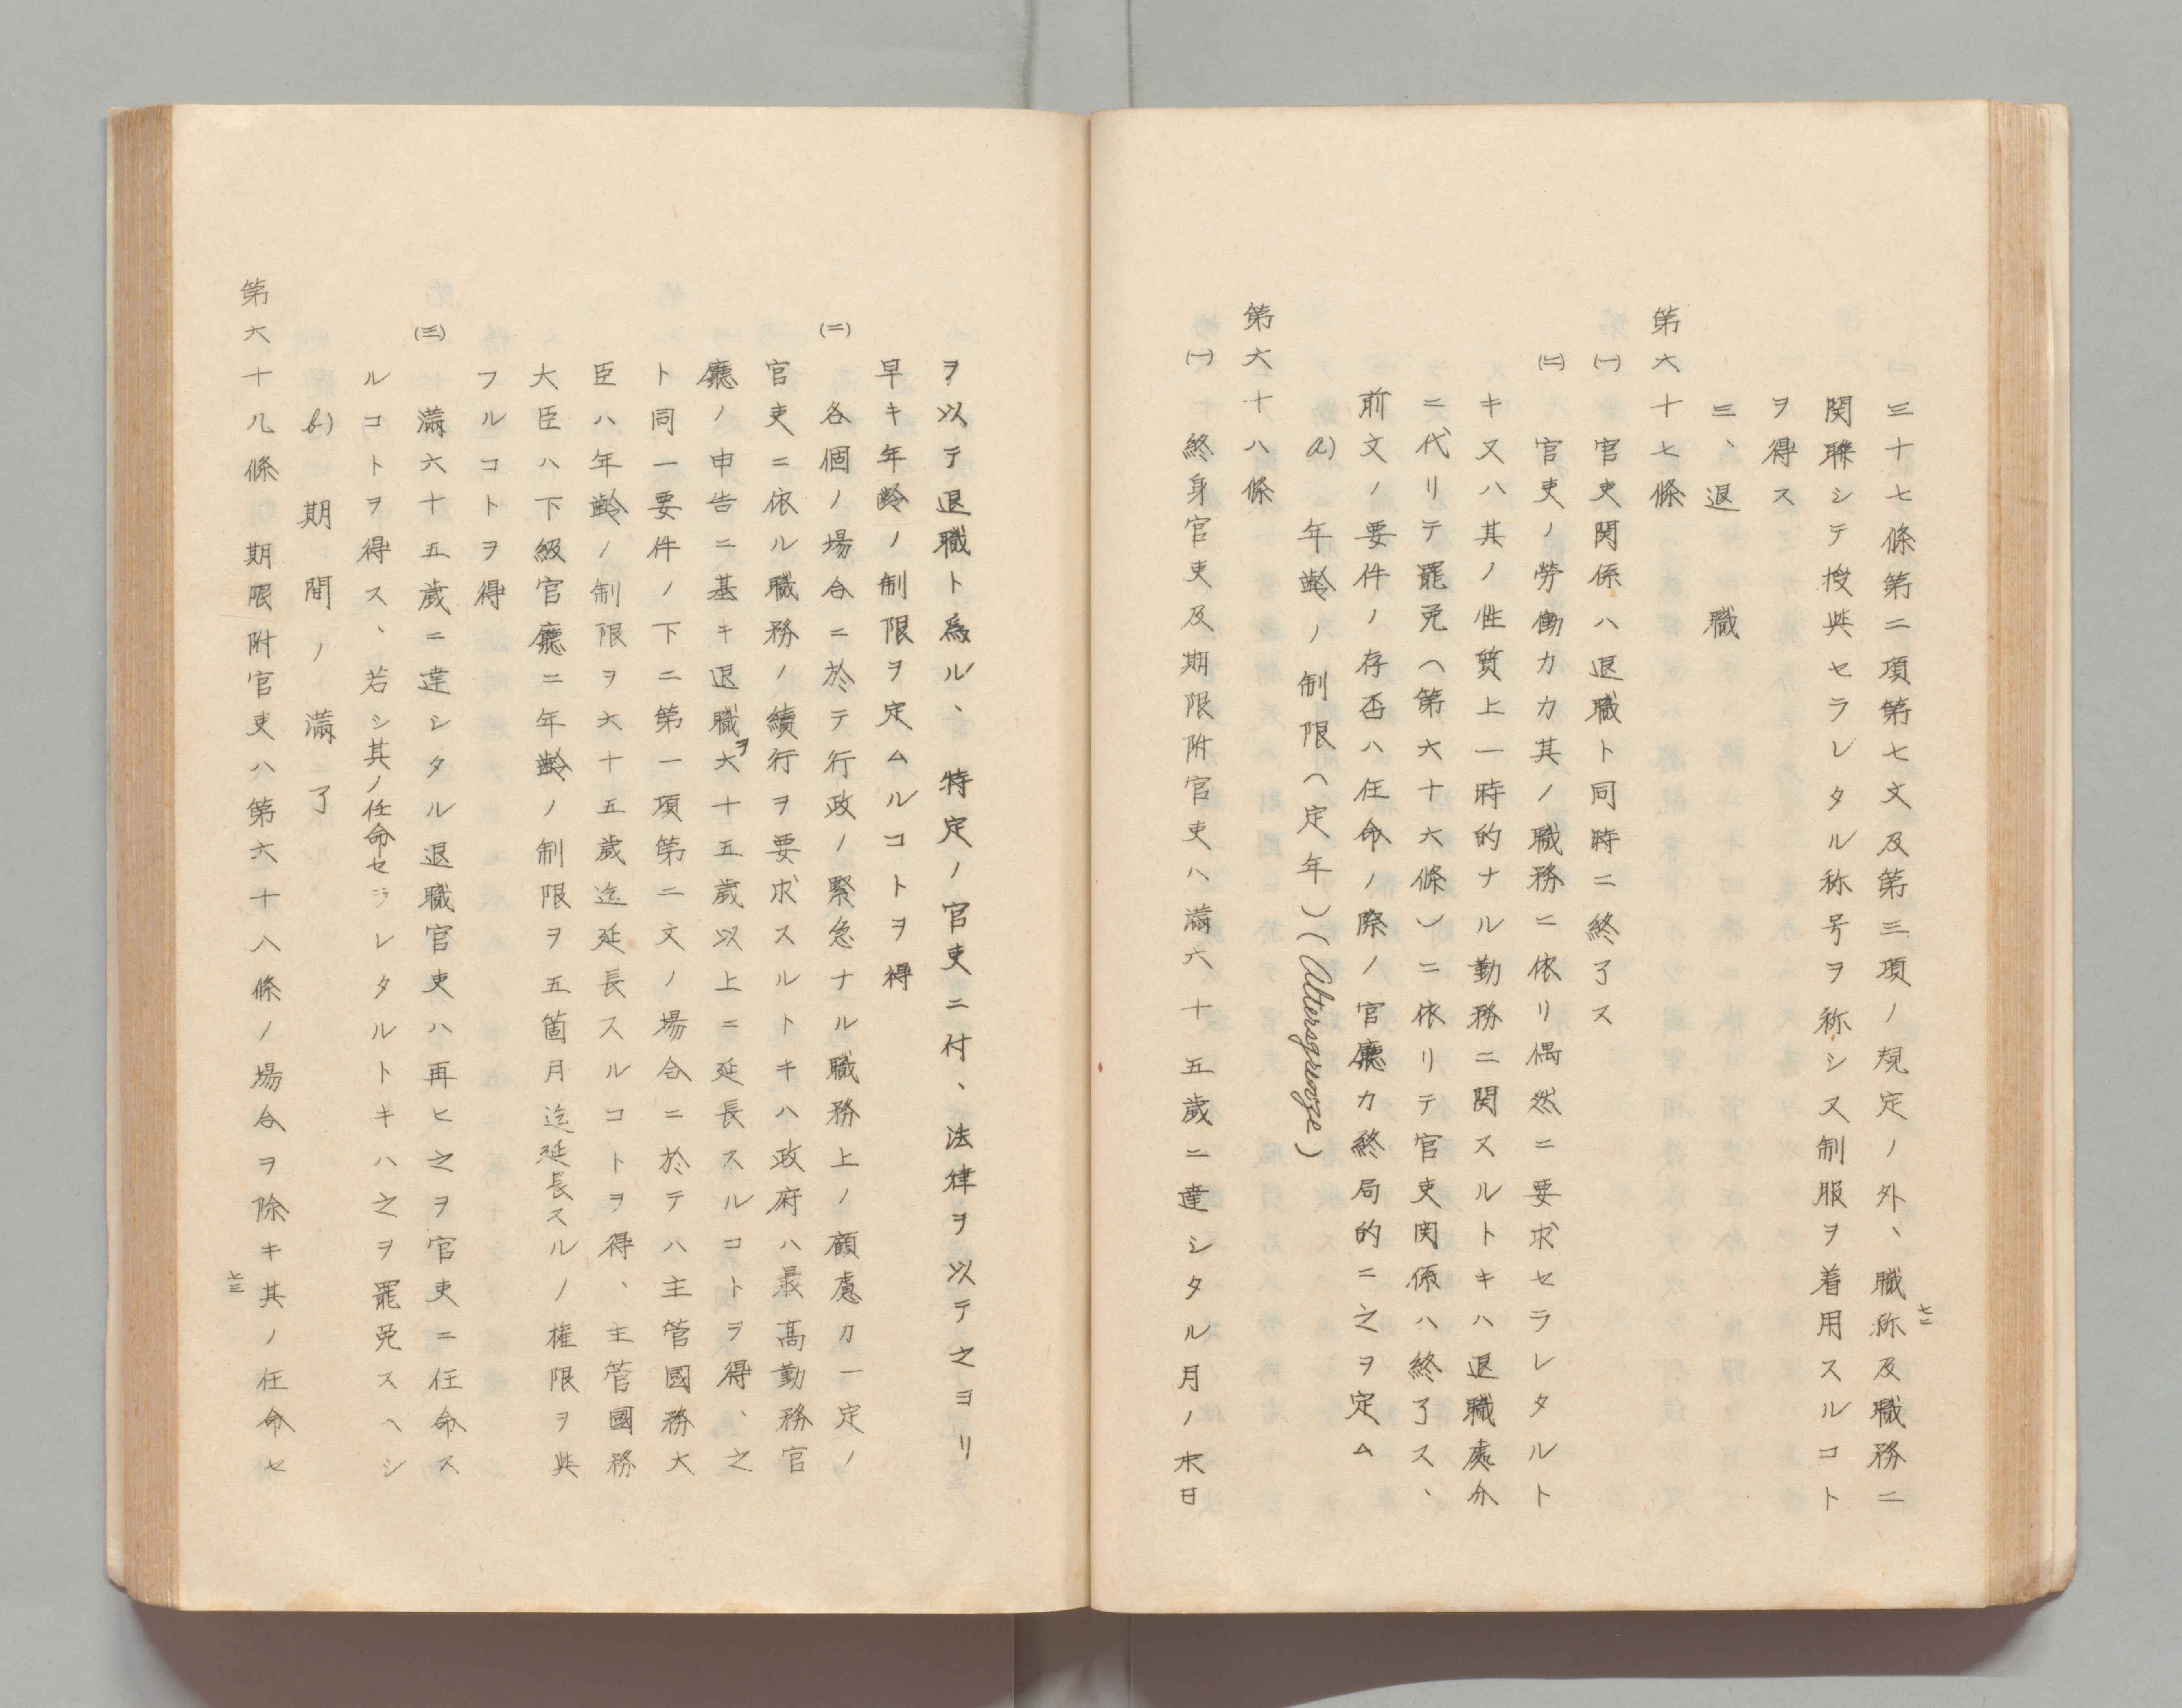 三十七條第二項第七文及第三項ノ規定ノ外、職称及職務ニ
関聯シテ授與セラレタル称号ヲ称シ又制服ヲ着用スルコト
ヲ得ス
三、退職
第六十七條
㈠ 官吏関係ハ退職ト同時ニ終了ス
㈡ 官吏ノ労働力カ其ノ職務ニ依リ偶然ニ要求セラレタルト
キ又ハ其ノ性質上一時的ナル勤務ニ関スルトキハ退職處分
ニ代リテ罷免（第六十六條）ニ依リテ官吏関係ハ終了ス、
前文ノ要件ノ存否ハ任命ノ際ノ官廳カ終局的ニ之ヲ定ム
a) 年齢ノ制限（定年）（Altersgrenze）
第六十八條
㈠ 終身官吏及期限附官吏ハ満六十五歳ニ達シタル月ノ末日
七二
ヲ以テ退職ト為ル、特定ノ官吏ニ付、法律ヲ以テ之ヨリ
早キ年齢ノ制限ヲ定ムルコトヲ得
㈡ 各個ノ場合ニ於テ行政ノ緊急ナル職務上ノ顧慮カ一定ノ
官吏ニ依ル職務ノ續行ヲ要求スルトキハ政府ハ最高勤務官
廳ノ申告ニ基キ退職ヲ六十五歳以上ニ延長スルコトヲ得、之
ト同一要件ノ下ニ第一項第二文ノ場合ニ於テハ主管國務大
臣ハ年齢ノ制限ヲ六十五歳迄延長スルコトヲ得、主管國務
大臣ハ下級官廳ニ年齢ノ制限ヲ五箇月迄延長スルノ権限ヲ與
フルコトヲ得
㈢ 満六十五歳ニ達シタル退職官吏ハ再ヒ之ヲ官吏ニ任命ス
ルコトヲ得ス、若シ其ノ任命セラレタルトキハ之ヲ罷免スヘシ
b) 期間ノ満了
第六十九條 期限附官吏ハ第六十八條ノ場合ヲ除キ其ノ任命セ
七三